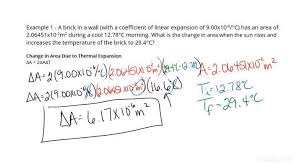 Example 1 - A brick in a wall (with a coefficient of linear expansion of 9.00x10⁻⁶/°C) has an area of
2.06451x10⁻²m² during a cool 12.78°C morning. What is the change in area when the sun rises and
increases the temperature of the brick to 29.4°C?
Change in Area Due to Thermal Expansion
ΔA = 2αAΔT
ΔA=2(9.00x10⁻⁶/°C)(2.06451x10⁻²m²)(29.4°C-12.78°C) A=2.06451x10⁻²m²
ΔA=2(9.00x10⁻⁶/°C)(2.06451x10⁻²m²)(16.62°C) Tᵢ=12.78°C
ΔA=6.17x10⁻⁶m² T_f=29.4°C